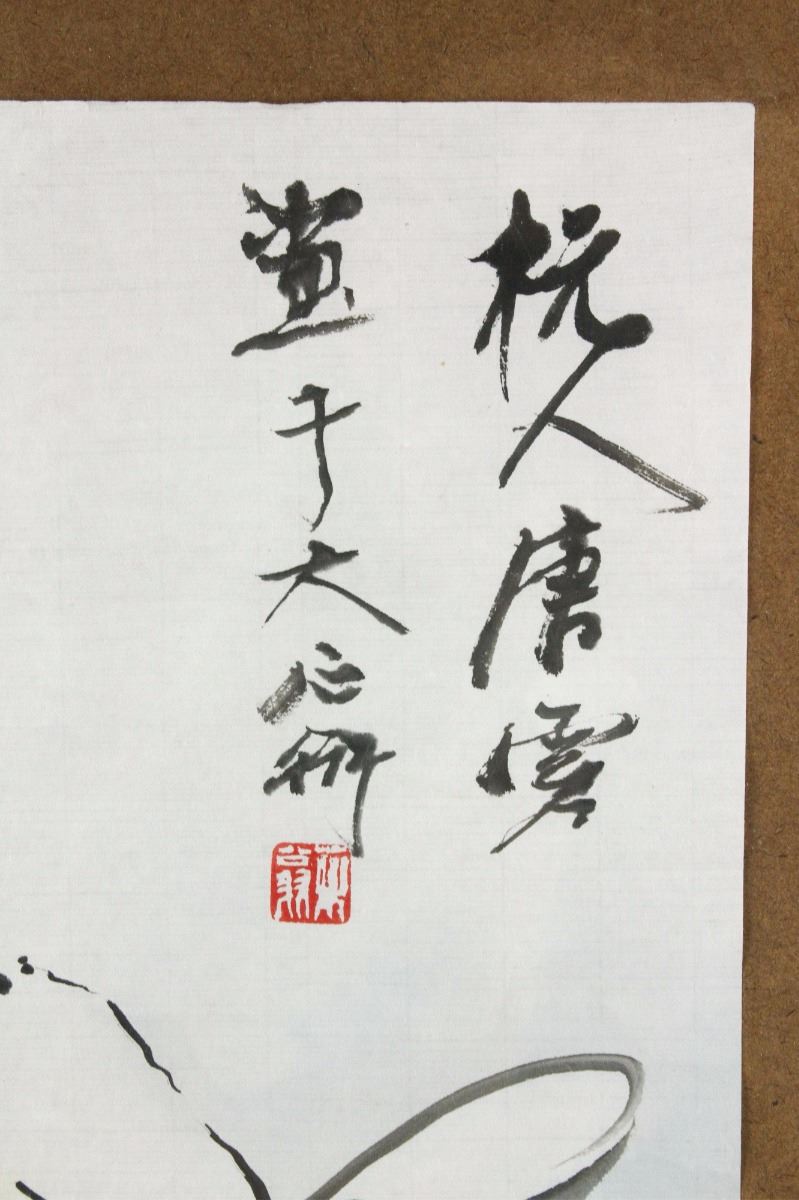 杭人唐雲
畫于大石斋